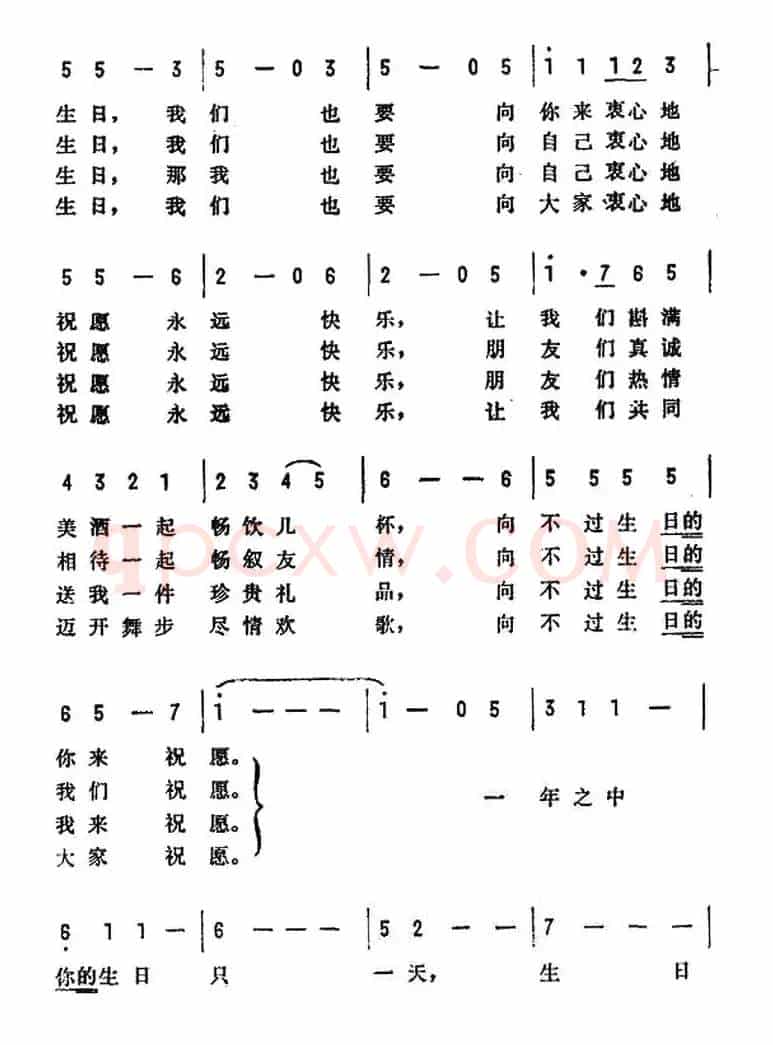 5 5 — 3 | 5 — 0 3 | 5 — 0 5 | i 1 12 3 |
生日， 我们 也要 向你来衷心地
生日， 我们 也要 向自己衷心地
生日， 那我 也要 向自己衷心地
生日， 我们 也要 向大家衷心地
5 5 — 6 | 2 — 0 6 | 2 — 0 5 | i · 7 6 5 |
祝愿 永远 快乐， 让我们斟满
祝愿 永远 快乐， 朋友们真诚
祝愿 永远 快乐， 朋友们热情
祝愿 永远 快乐， 让我们共同
4 3 2 1 | 2 3 4 5 | 6 — — 6 | 5 5 5 5 |
美酒一起 畅饮几 杯， 向不过生日的
相待一起 畅叙友 情， 向不过生日的
送我一件 珍贵礼 品， 向不过生日的
迈开舞步 尽情欢 歌， 向不过生日的
qpcxw.com
6 5 — 7 | i — — — | i — 0 5 | 3 1 1 — |
你来 祝愿。
我们 祝愿。
我来 祝愿。
大家 祝愿。
一 年之中
6 1 1 — | 6 — — — | 5 2 — — | 7 — — — |
你的生日 只 一天， 生 日